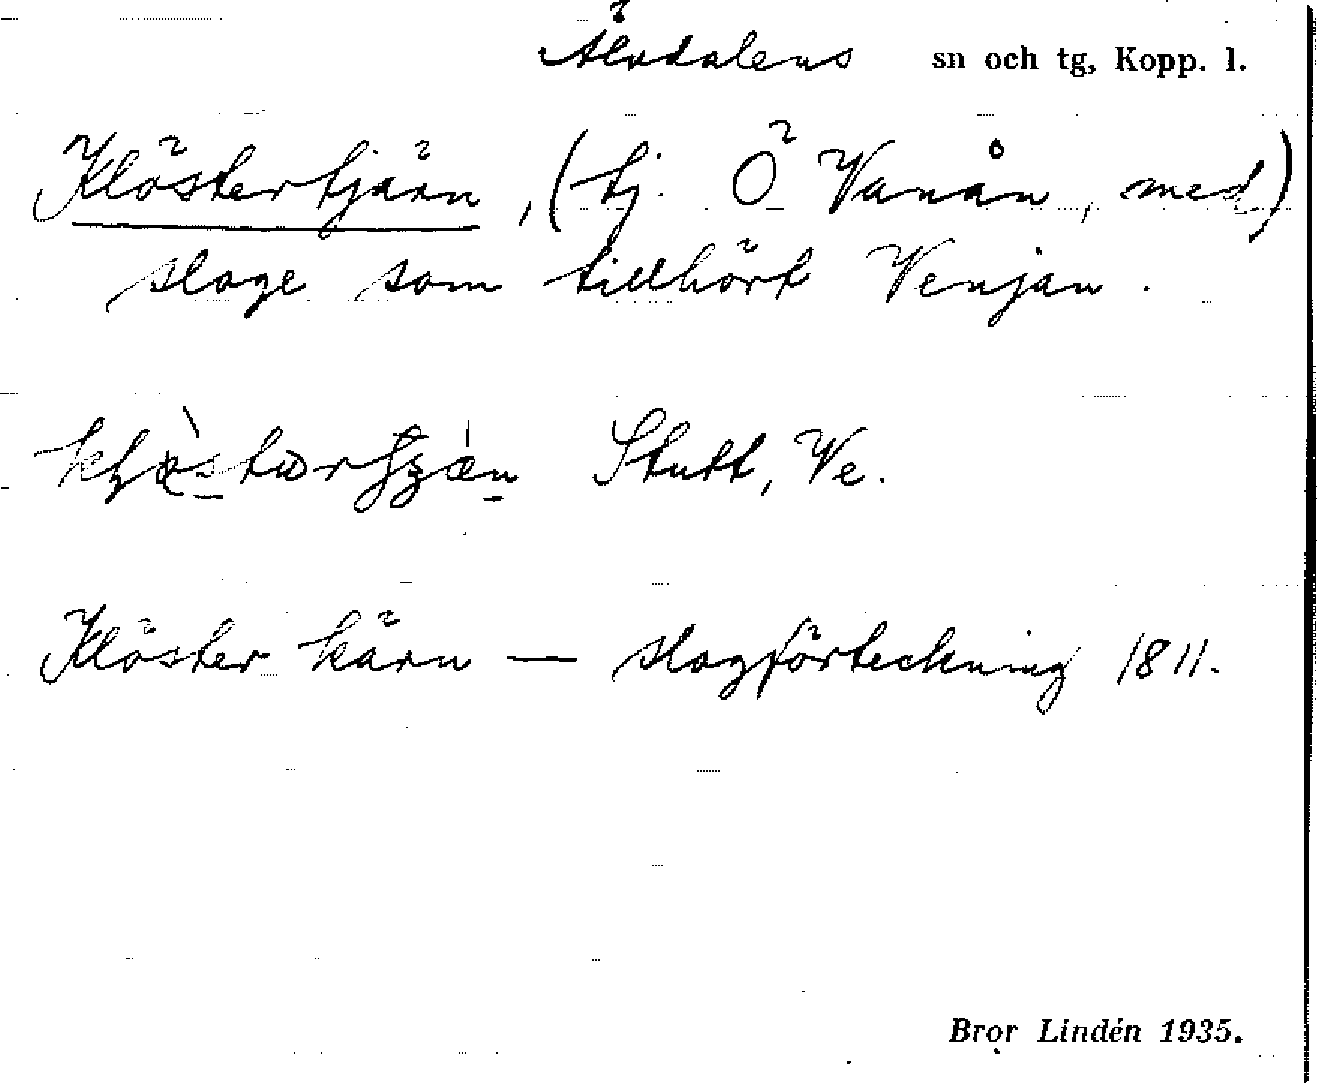 Älvdalens sn och tg, Kopp. l.
Klöstertjärn, (tj. Ö Vanån, med)
sloge som tillhört Venjan.
Stutt, Ve.
Klöster kärn — slogförteckning 1811.
Bror Lindén 1935.